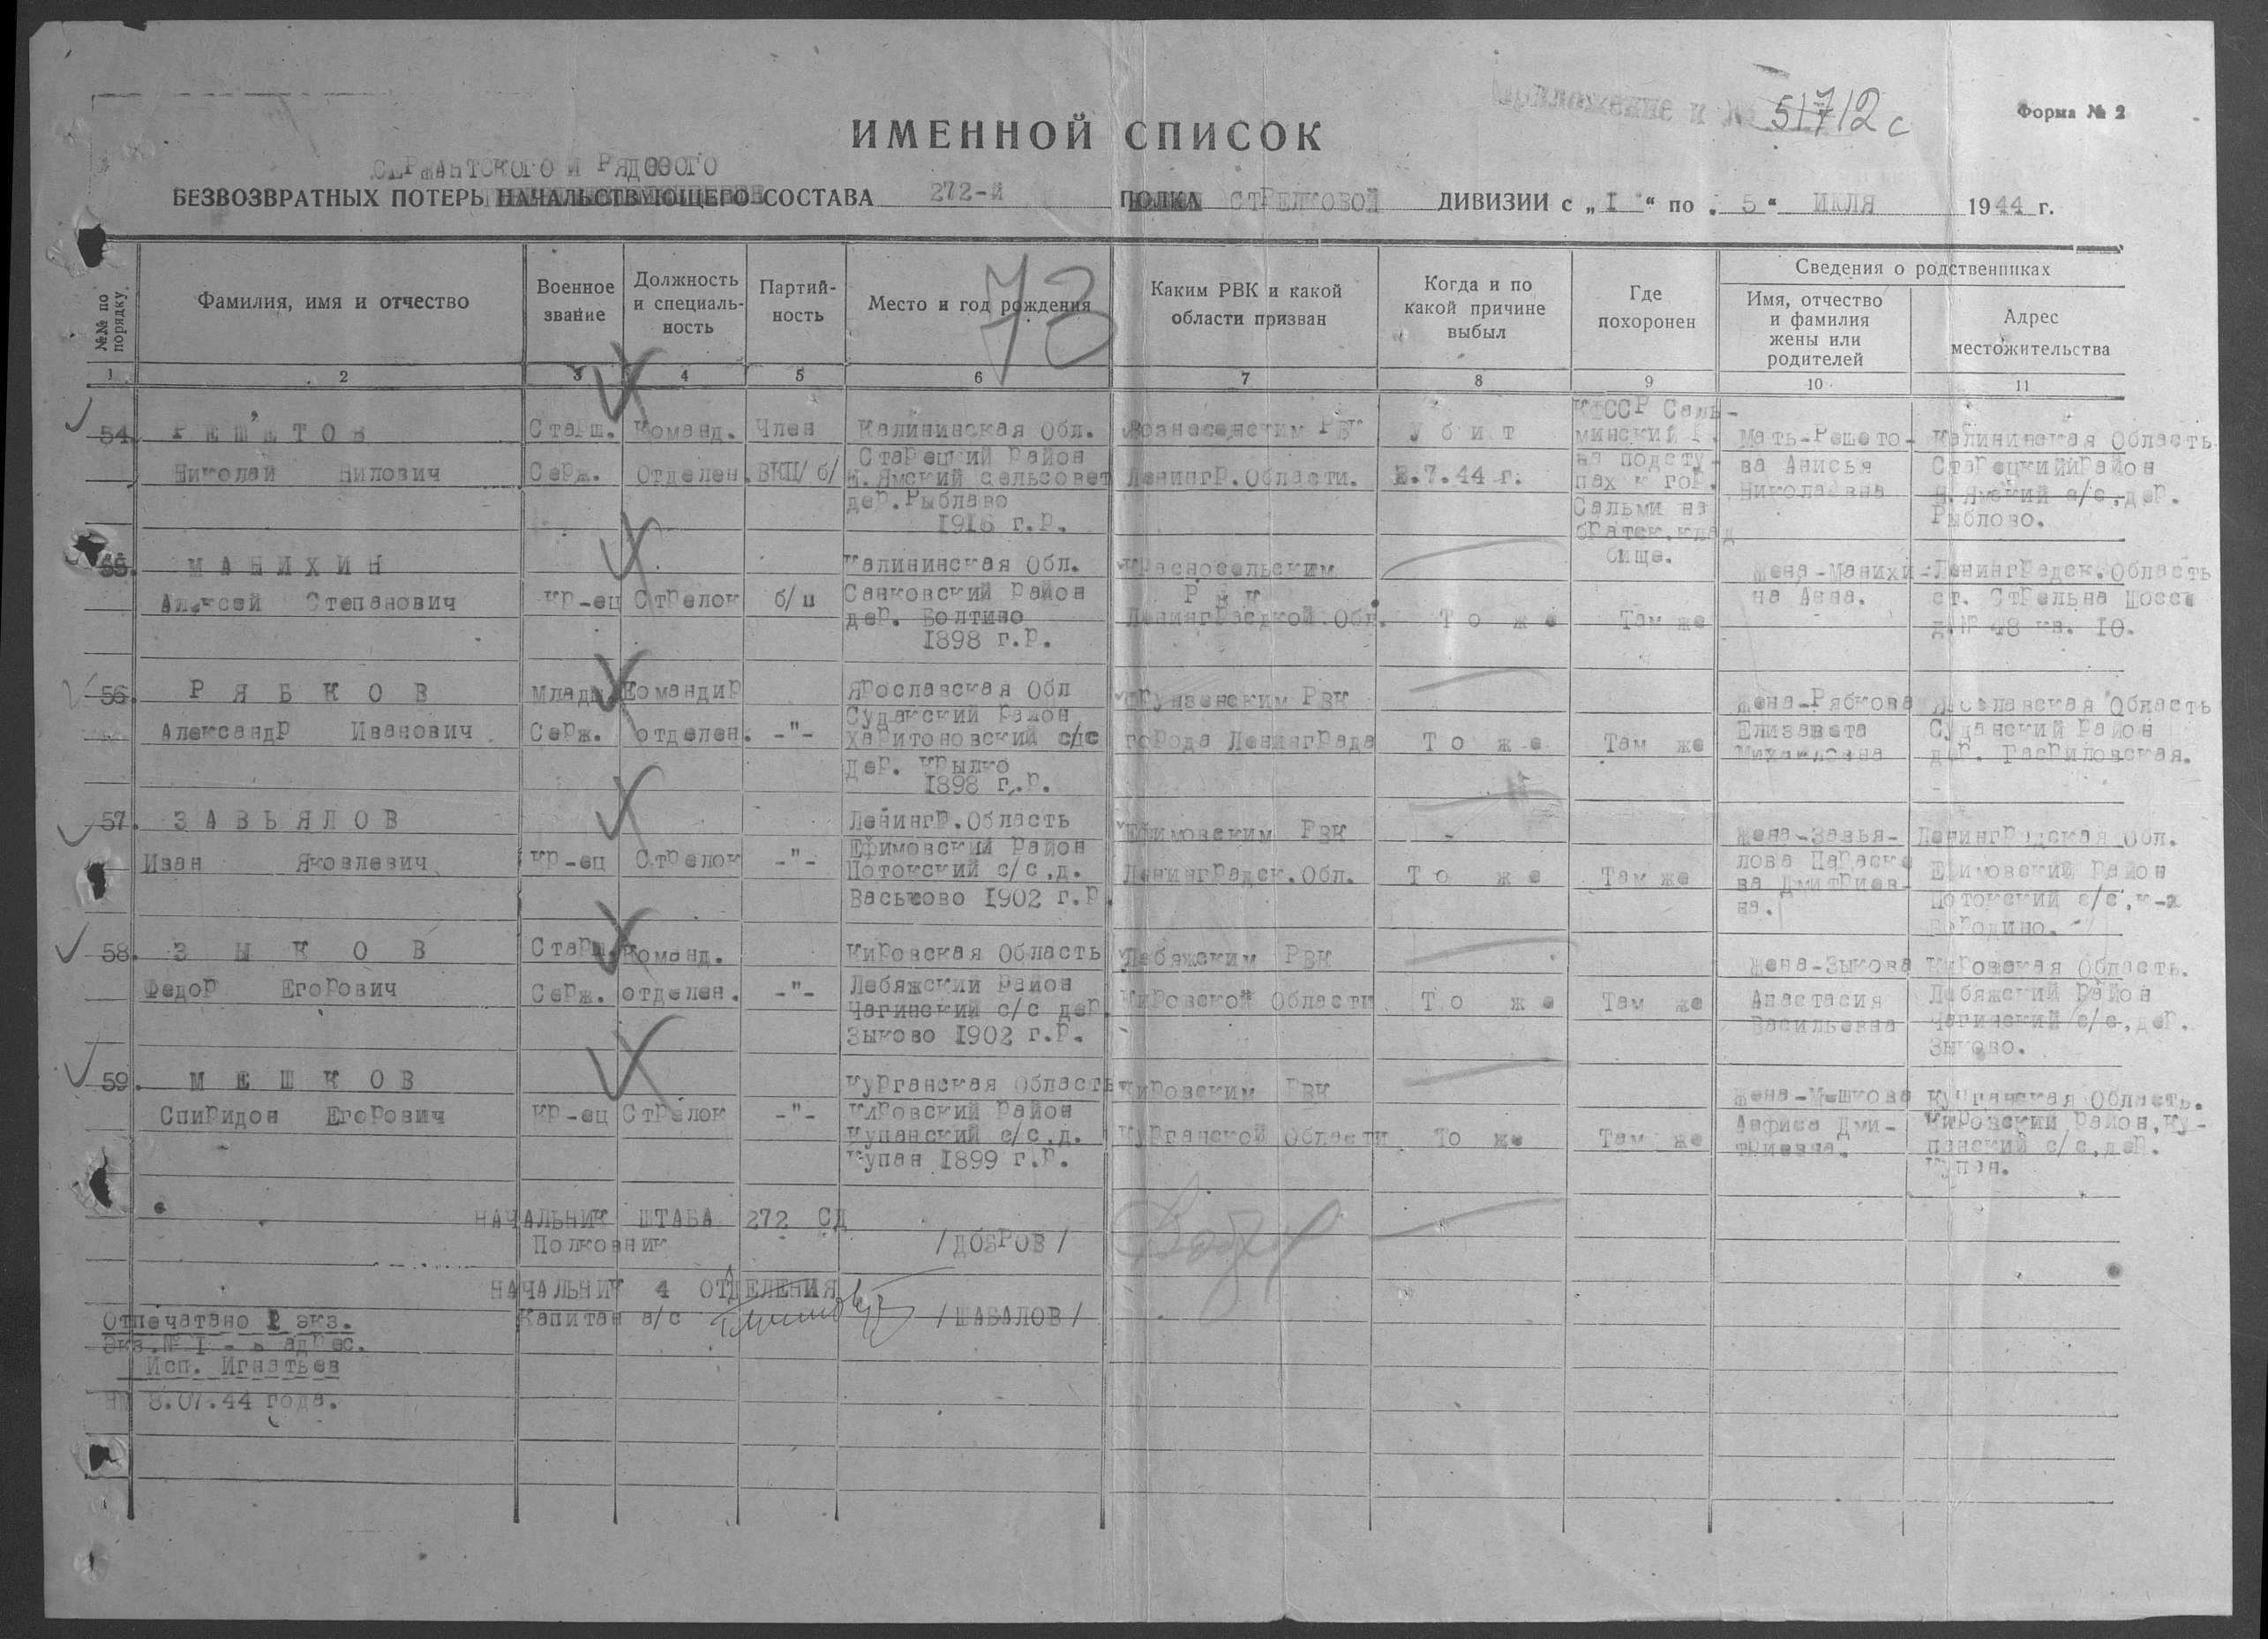 Приложение к № 51712с
Форма № 2
ИМЕННОЙ СПИСОК
СЕРЖАНТСКОГО И РЯДОВОГО
БЕЗВОЗВРАТНЫХ ПОТЕРЬ НАЧАЛЬСТВУЮЩЕГО СОСТАВА 272-й ПОЛКА СТРЕЛКОВОЙ ДИВИЗИИ с „I“ по „5“ ИЮЛЯ 1944 г.
73
№№ по порядку
Фамилия, имя и отчество
Военное звание
Должность и специаль-ность
Партий-ность
Место и год рождения
Каким РВК и какой области призван
Когда и по какой причине выбыл
Где похоронен
Сведения о родственниках
Имя, отчество и фамилия жены или родителей
Адрес местожительства
1 2 3 4 5 6 7 8 9 10 11
54. РЕШЕТОВ
Николай Нилович
Старш. Серж.
Команд. Отделен.
Член ВКП/б/
Калининская Обл.
Старецкий Район
Н.Ямский сельсовет
дер.Рыблово
1916 г.р.
Вознесенским РВК
Ленингр.Области.
Убит
2.7.44 г.
КФССР Саль-
минский Р.
на подсту-
пах к гор.
Сальми на
братск.клад
бище.
Мать-Решето-
ва Анисья
Николаевна
Калининская Область
Старецкий район
Н.Ямский с/с,дер.
Рыблово.
55. МАНИХИН
Алексей Степанович
Кр-ец
Стрелок
б/п
Калининская Обл.
Санковский Район
дер. Болтино
1898 г.р.
Красносельским
РВК
Ленинградкой Обл.
То же
Там же
Жена-Манихи-
на Анна.
Ленинградск.Область
ст. Стрельна Шоссе
д.№ 48 кв. 10.
56. РЯБКОВ
Александр Иванович
Младш. Серж.
Командир отделен.
-"-
Ярославская Обл
Судакский Район
Харитоновский с/с
Дер. Крылко
1898 г.р.
Фрунзенским РВК
города Ленинграда
То же
Там же
Жена-Рябкова
Елизавета
Михайловна
Ярославская Область
Суданский Район
дер. Гавриловская.
57. ЗАВЬЯЛОВ
Иван Яковлевич
Кр-ец
Стрелок
-"-
Ленингр.Область
Ефимовский Район
Потокский с/с,д.
Васьково 1902 г.р.
Ефимовским РВК
Ленинградск.Обл.
То же
Там же
Жена-Завья-
лова Параске
ва Дмитриев-
на.
Ленинградская Обл.
Ефимовский Район
Потокский с/с,к-з
Бородино.
58. ЗЫКОВ
Федор Егорович
Старш. Серж.
Команд. отделен.
-"-
Кировская Область
Лебяжский Район
Чагинский с/с дер
Зыково 1902 г.р.
Лебяжским РВК
Кировской Области
То же
Там же
Жена-Зыкова
Анастасия
Васильевна
Кировская Область.
Лебяжский Район
Чагинский с/с,дер.
Зыково.
59. МЕШКОВ
Спиридон Егорович
Кр-ец
Стрелок
-"-
Курганская Область
Кировский Район
Купанский с/с,д.
Купан 1899 г.р.
Кировским РВК
Курганской Области
То же
Там же
Жена-Мешкова
Анфиса Дми-
триевна.
Курганская Область.
Кировский Район,Ку-
панский с/с,дер.
Купан.
НАЧАЛЬНИК ШТАБА 272 СД
Полковник /ДОБРОВ/
НАЧАЛЬНИК 4 ОТДЕЛЕНИЯ
Капитан а/с /ШАБАЛОВ/
Отпечатано 2 экз.
Экз.№ I - в адрес.
Исп. Игнатьев
8.07.44 года.